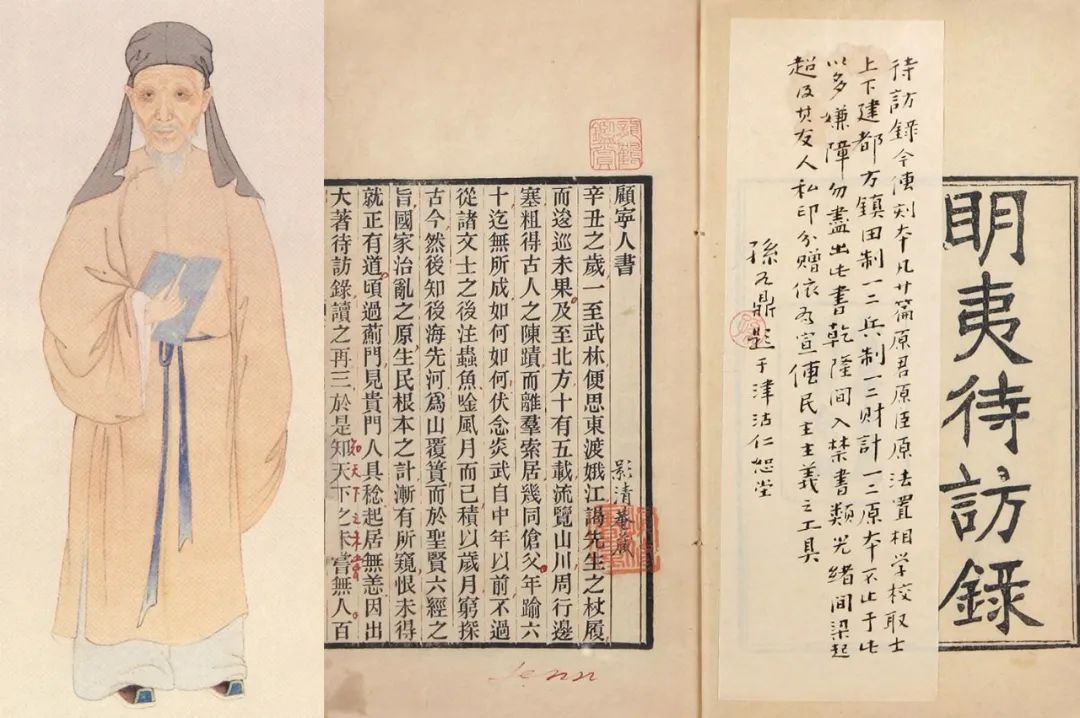 明夷待訪錄
待訪錄今傳刻本凡廿篇原君原臣原法置相学校取士
上下建都方鎮田制一二三兵制一二財計一二三原本不止于此
以多嫌障勿盡出此書乾隆間入禁書類光緒間梁起
超及其友人私印分贈依為宣傳民主主義之工具
孫鼎題于津沽仁恕堂
顧寧人書
辛丑之歲一至武林便思東渡娥江謁先生之杖履
而逡巡未果及至北方十有五載流覽山川周行邊
塞粗得古人之陳蹟而離羣索居幾同傖父年踰六
十迄無所成如何如何伏念炎武自中年以前不過
從諸文士之後注蟲魚唫風月而已積以歲月窮探
古今然後知後海先河爲山覆簣而於聖賢六經之
旨國家治亂之原生民根本之計漸有所窺恨未得
就正有道頃過薊門見貴門人具稔起居無恙因出
大著待訪錄讀之再三於是知天下之未嘗無人百
知天下之未嘗